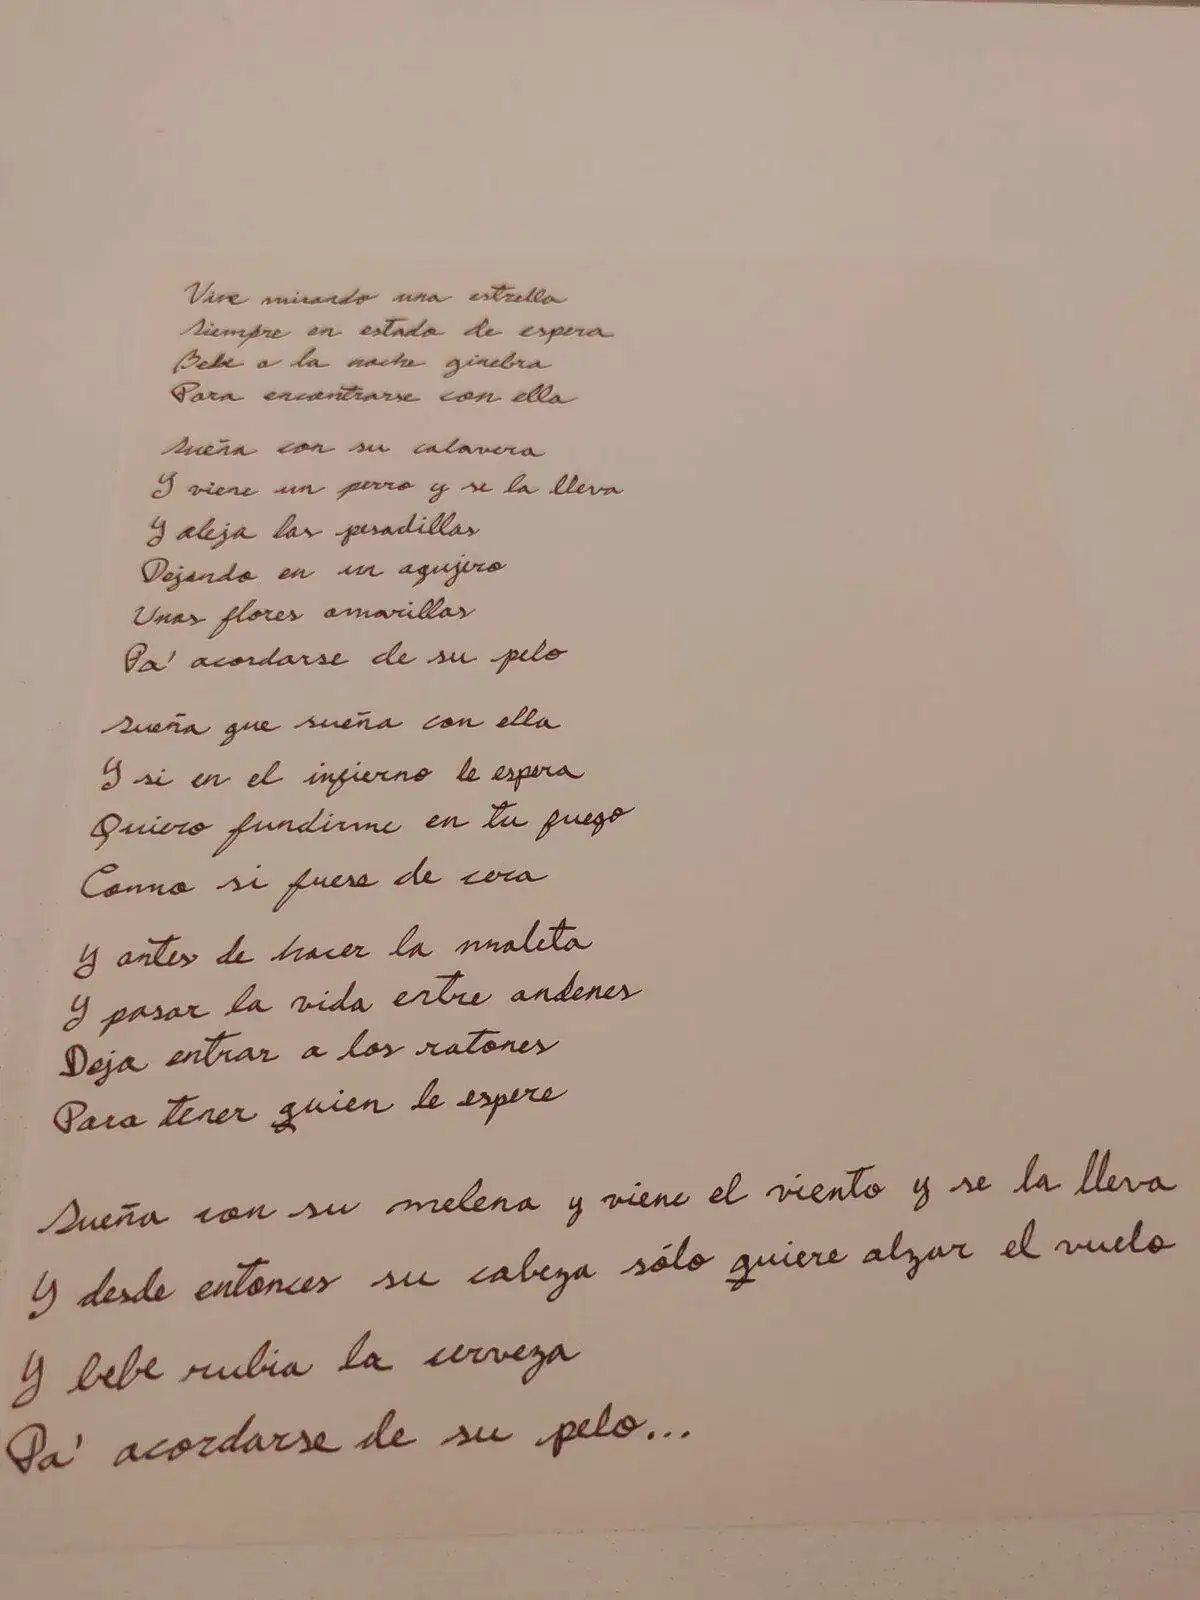 Vive mirando una estrella
Siempre en estado de espera
Bebe a la noche ginebra
Para encontrarse con ella
Sueña con su calavera
Y viene un perro y se la lleva
Y aleja las pesadillas
Dejando en un agujero
Unas flores amarillas
Pa' acordarse de su pelo
Sueña que sueña con ella
Y si en el infierno le espera
Quiero fundirme en tu fuego
Como si fuese de cera
Y antes de hacer la maleta
Y pasar la vida entre andenes
Deja entrar a los ratones
Para tener quien le espere
Sueña con su melena y viene el viento y se la lleva
Y desde entonces su cabeza sólo quiere alzar el vuelo
Y bebe rubia la cerveza
Pa' acordarse de su pelo...